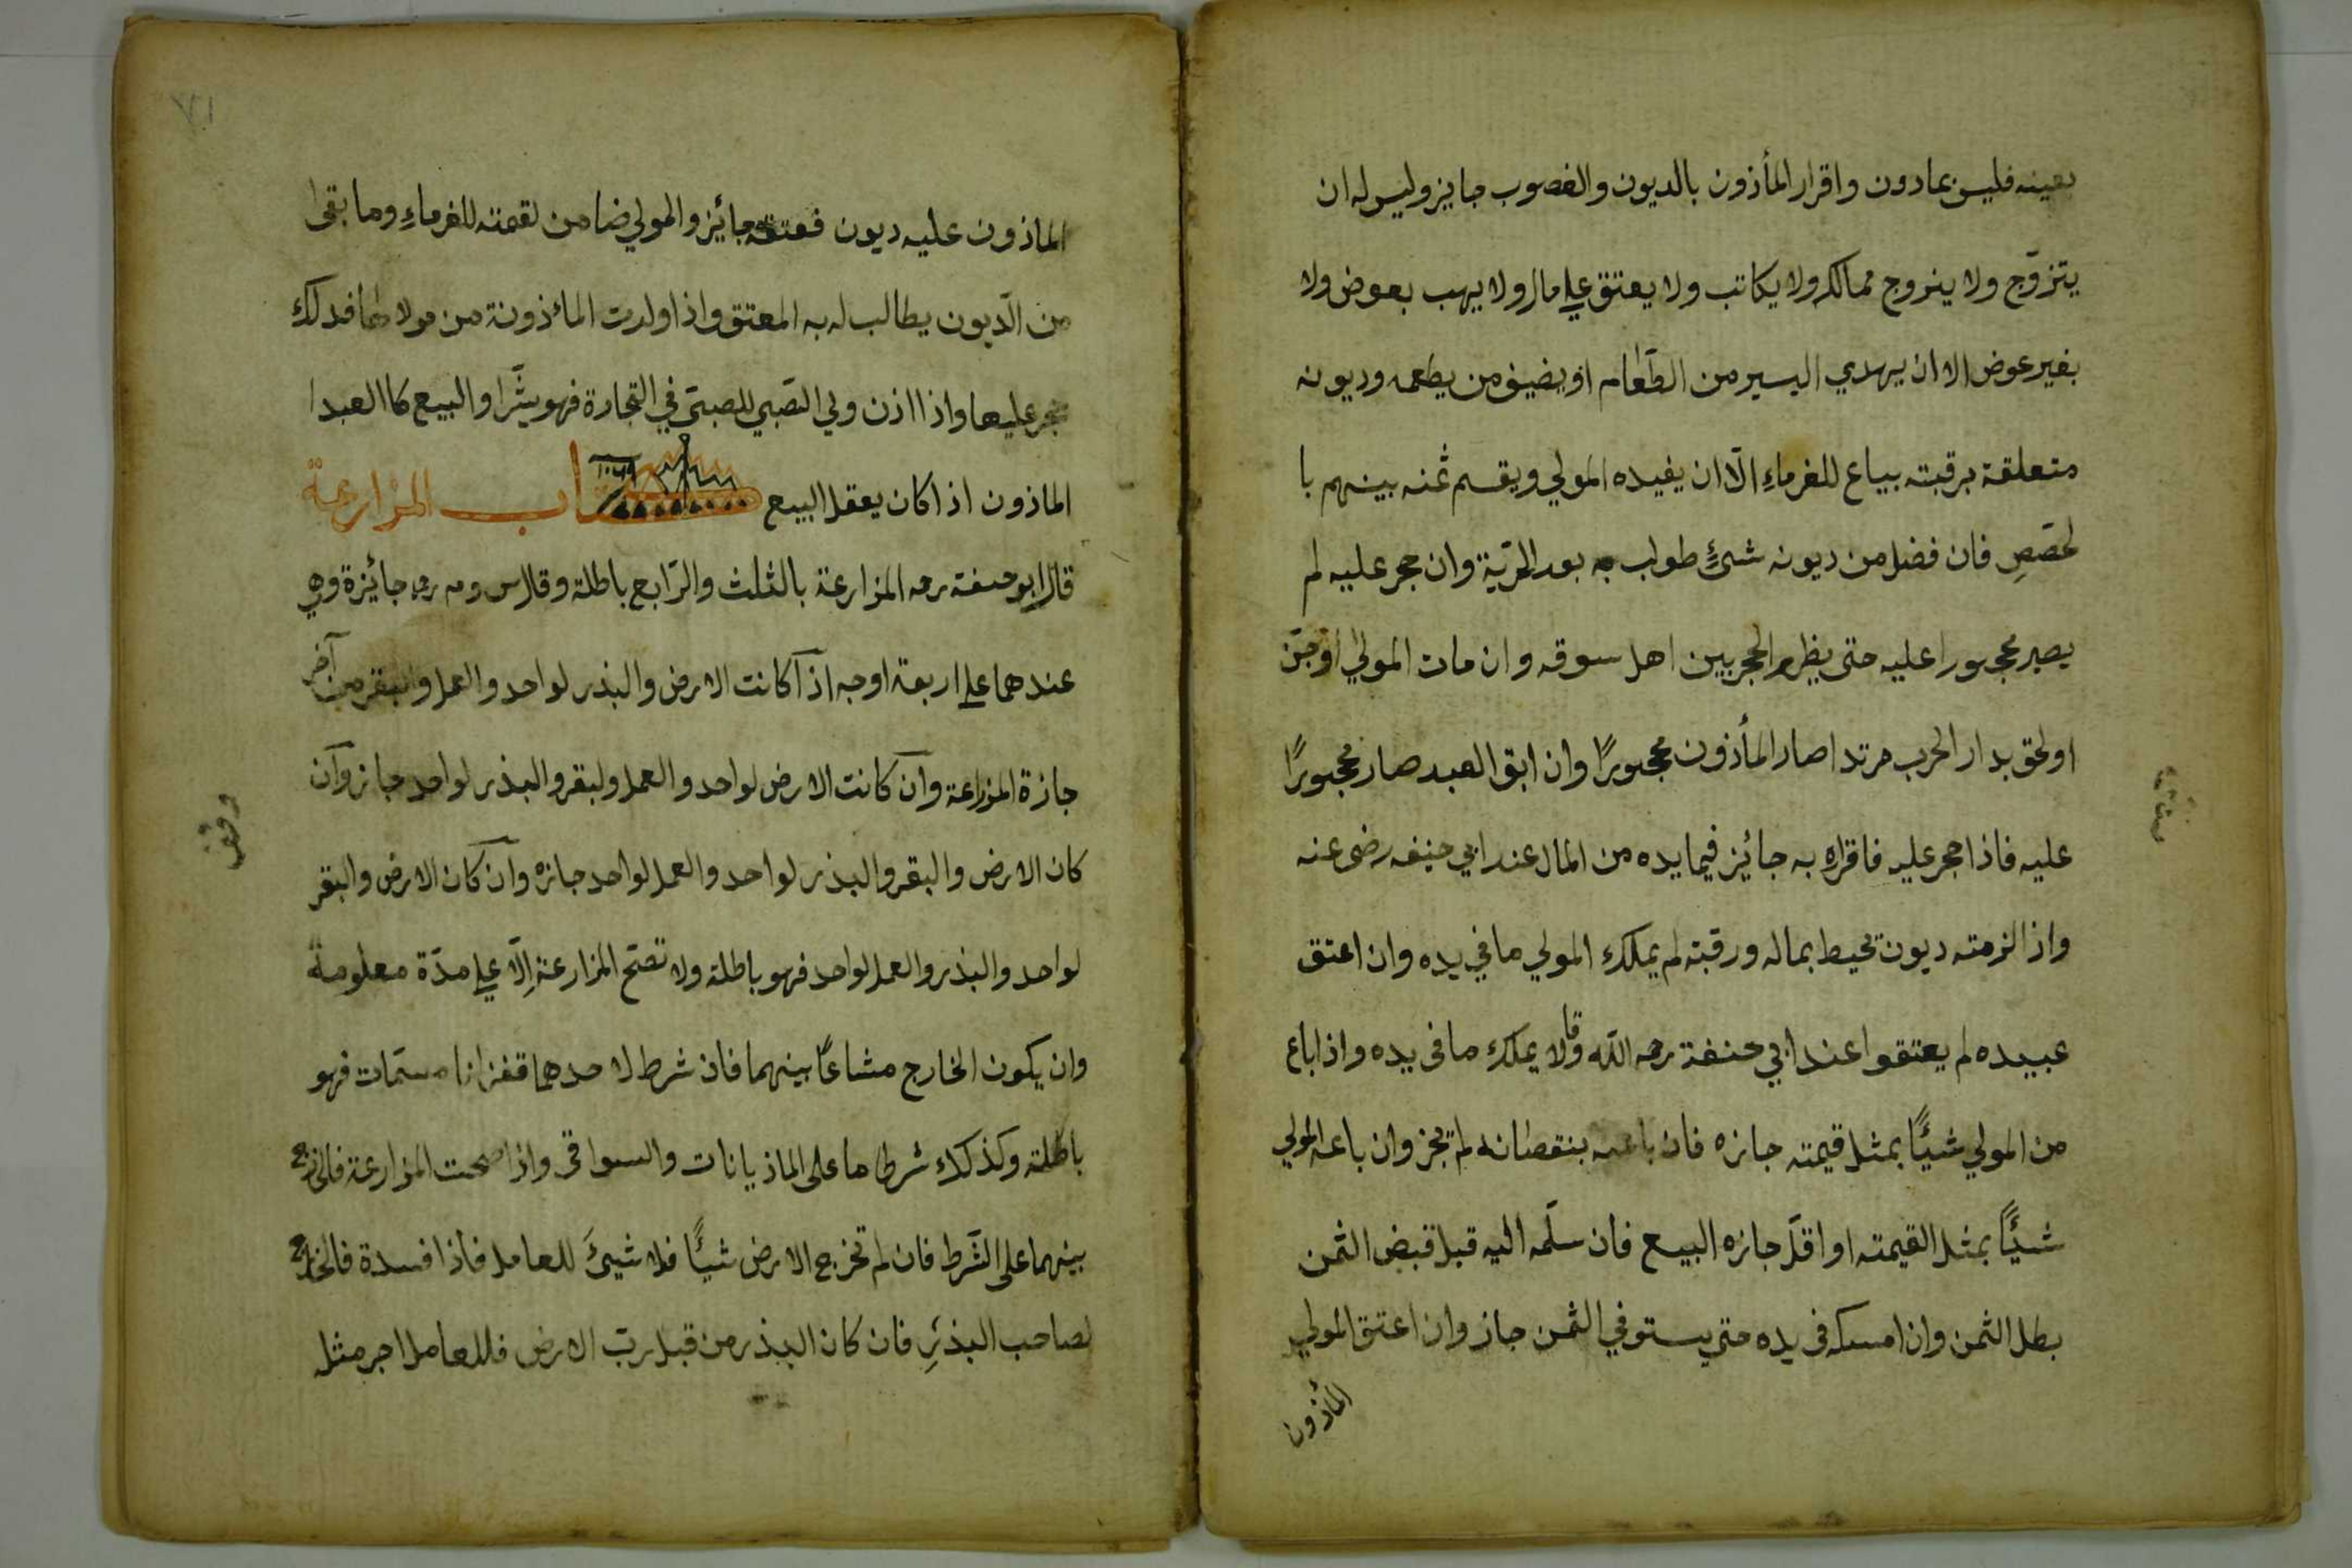 بعينه فليس بمادون واقرار المأذون بالديون والغصوب جايز وليس له ان
يتزوّج ولا يزوج ممالكه ولا يكاتب ولا يعتق علي مال ولا يهب بعوض ولا
بغير عوض الا ان يهدي اليسير من الطّعام او يضيف من يطعمه وديونه
متعلقة برقبته يباع للغرماءِ الّا ان يفيده المولي ويقسم ثمنه بينهم با
لحصَصِ فان فضل من ديونه شئٌ طولب به بعد الحرّية وان حجر عليه لم
يصير محجورا عليه حتى يظهر الحجر بين اهل سوقه وان مات المولي او جنّ
او لحق بدار الحرب مرتدا صار المأذون محجورًا وان ابق العبد صار محجورًا
عليه فاذا حجر عليه فاقراره به جائيز فيما يده من المال عند ابي حنيفه رضى عنه
واذ الزمته ديون تحيط بماله ورقبته لم يملك المولي ما في يده وان اعتق
عبيده لم يعتقوا عند ابي حنفة رحمه اللّه وقالا يملك ما فى يده واذا باع
من المولي شيئًا بمثل قيمته جازه فان باعه بنقصانه لم تجز وان باعه المولي
شيئًا بمثل القيمته او اقلّ جازه البيع فان سلّمه اليه قبل قبض الثمن
بطل الثمن وان امسكه فى يده حتي يستوفي الثمن جاز وان اعتق المولي
المأذون
٧١
الماذون عليه ديون فعتقه جائيز والمولي ضامن لقمته للغرماءِ وما بقى
من الّديون يطالب له به المعتق واذا ولدت المائذونة من مولاها فدلك
حجر عليها واذا اذن ولي الصّبي للصبيّ في التجارة فهو يشّرا والبيع كا العبدا
الماذون اذا كان يعقل البيع كتاب المزارعة
قال ابو حنفة رحمه المزارعة بالثلث والرّابع باطلة وقال س وم رحم جائيزة وهي
عندهما علي اربعة اوجه اذا كانت الارض والبذر لواحد والعمل والبقر من آخر
جازة المزارعة وان كانت الارض لواحد والعمل ولبقر والبذر لواحد جاز وان
كان الارض والبقر والبذر لواحد والعمل لواحد جازه وان كان الارض والبقر
لواحد والبذر والعمل لواحد فهو باطلة ولا تصّح المزارعة اِلّا علي مدّة معلومة
وان يكون الخارج مشاعًا بينهما فان شرط لاحدهما قفزانا مسمّات فهو
باطلة وكذلك شرط ما على الماذيانات والسواقى واذا صحت المزارعة فالخارج
بينهما على الشّرط فان لم تخرج الارض شيئًا فلا شيئَ للعامل فاذا فسدة فالخارج
لصاحب البذرِ فان كان البذر من قبل ربّ الارض فللعامل اجر مثل
وقف